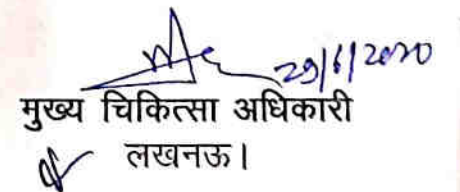 29/6/2020
मुख्य चिकित्सा अधिकारी
लखनऊ।